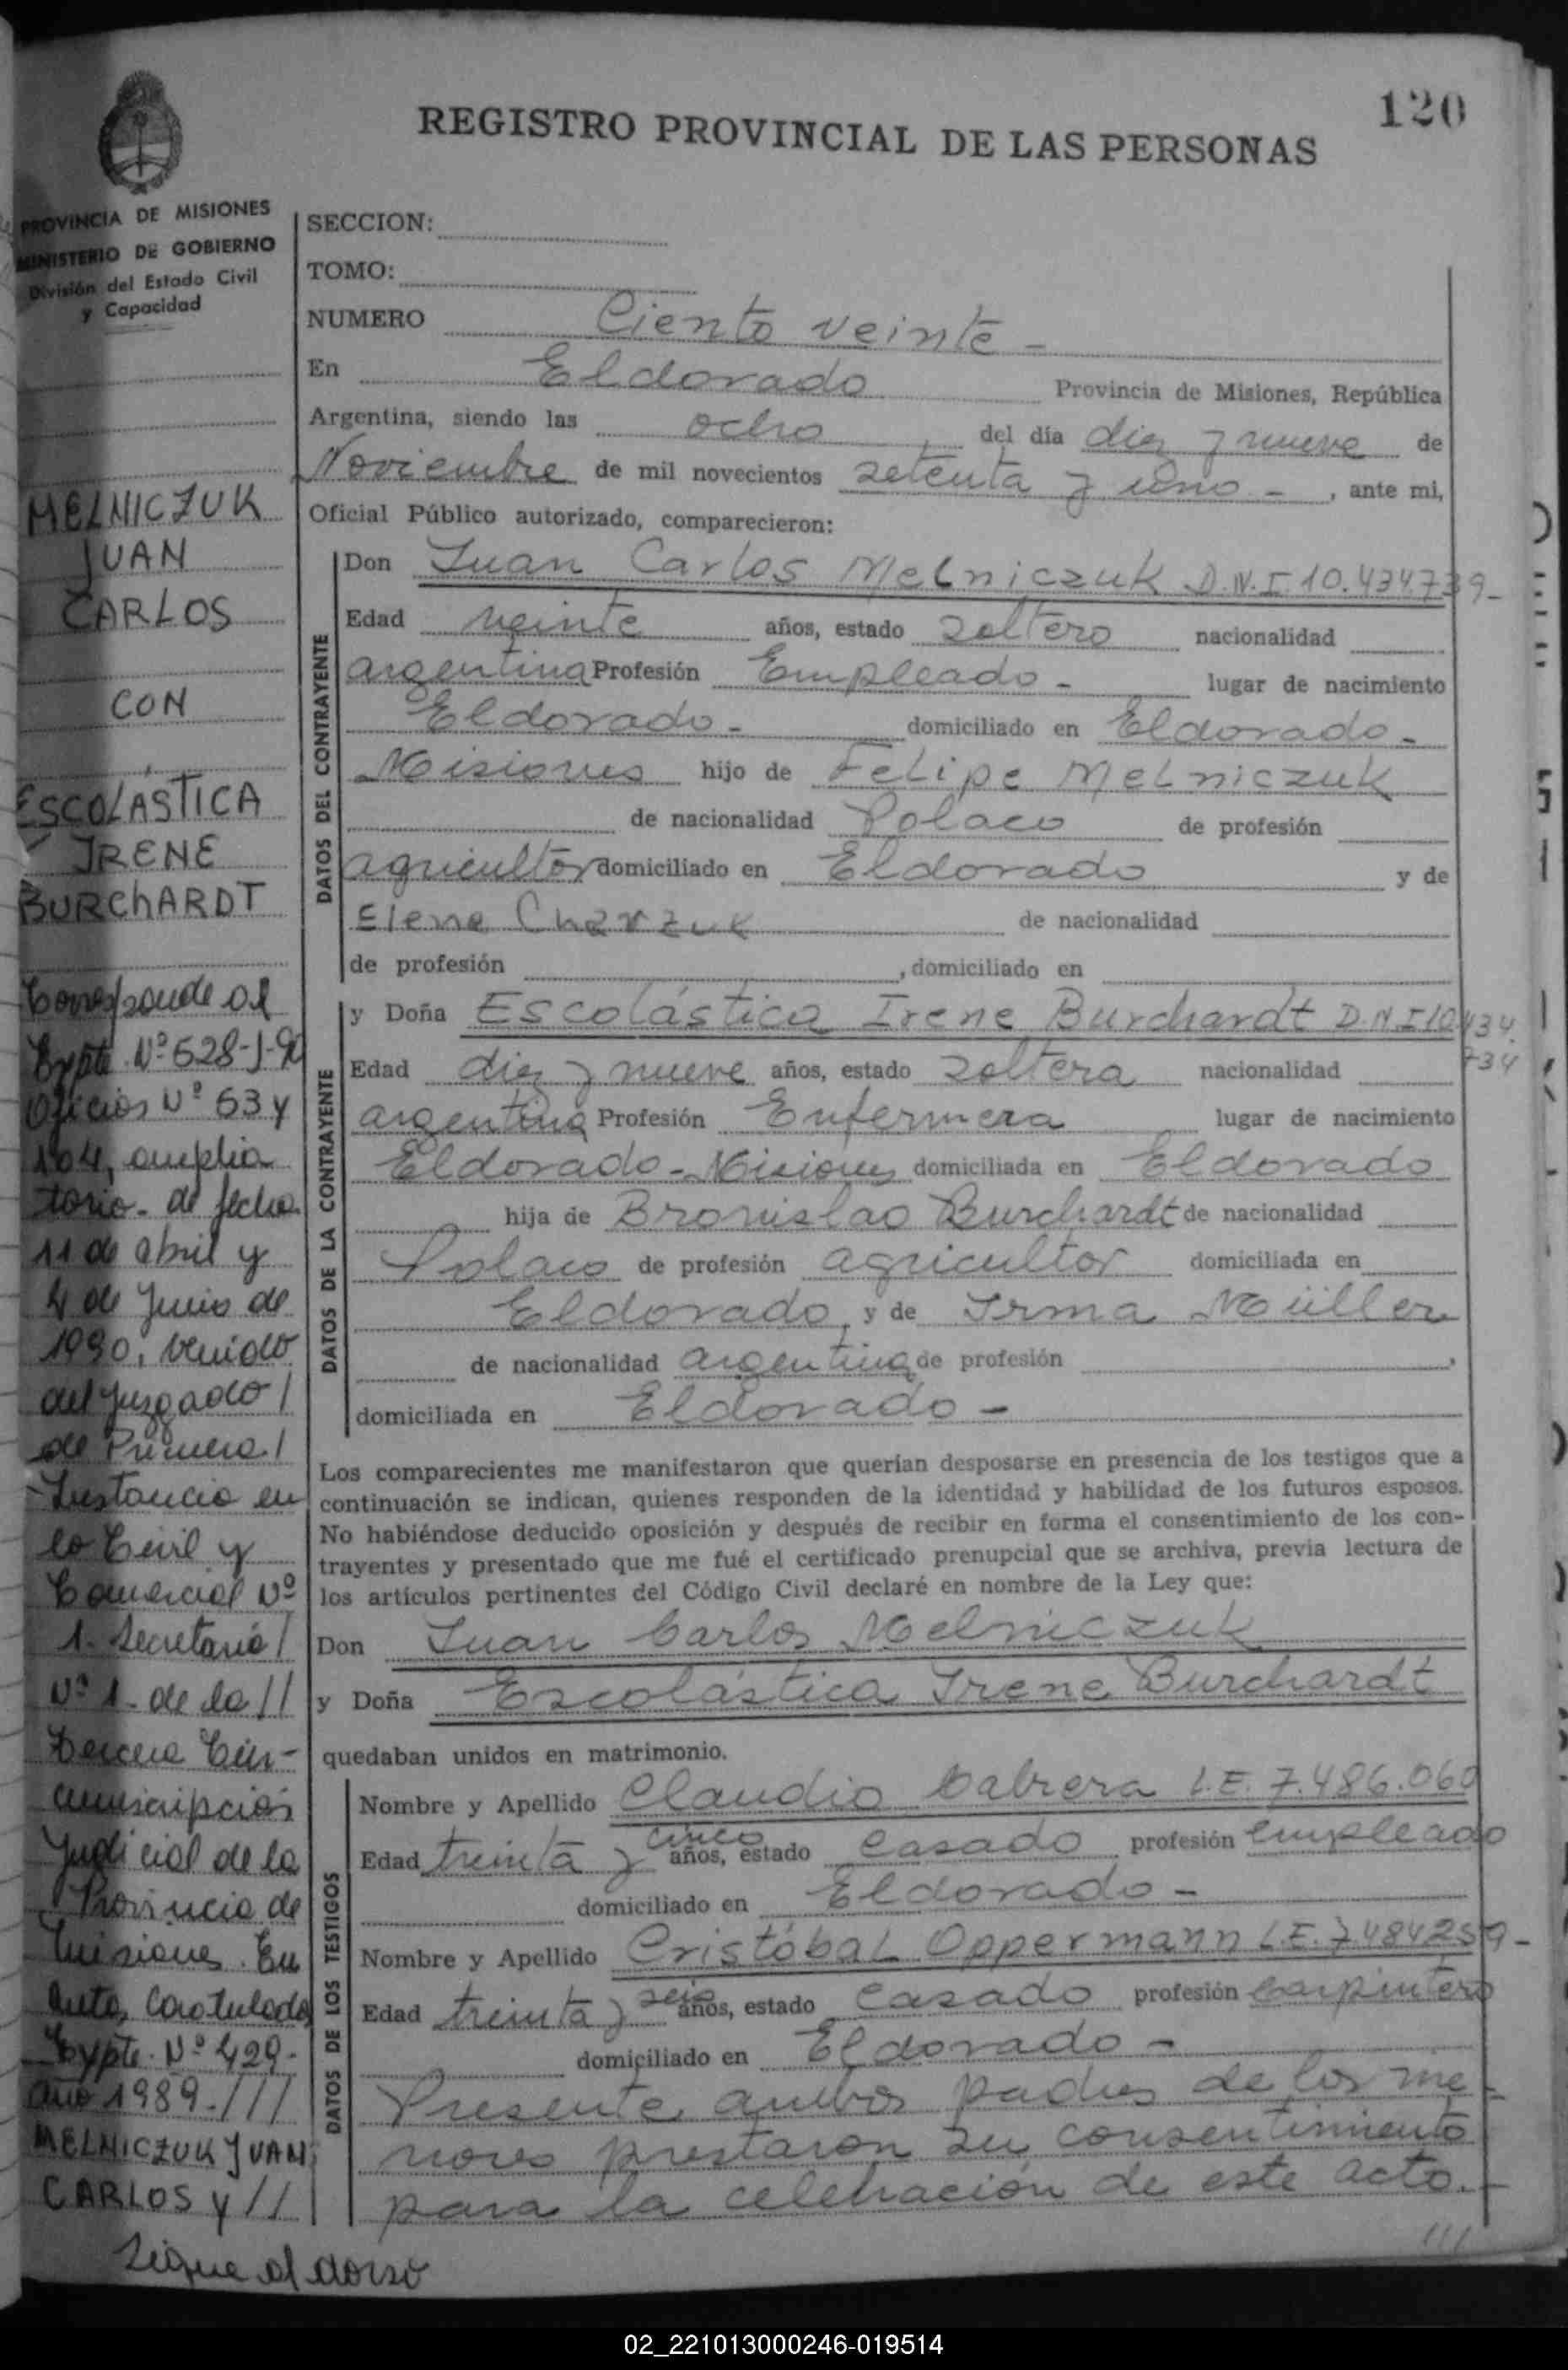 120
REGISTRO PROVINCIAL DE LAS PERSONAS
PROVINCIA DE MISIONES
MINISTERIO DE GOBIERNO
División del Estado Civil
y Capacidad
MELNICZUK
JUAN
CARLOS
CON
ESCOLASTICA
IRENE
BURCHARDT
Corresponde al
Expte. Nº 628-J-90
Oficios Nº 63 y
104, amplia
torio - de fecha
11 de abril y
4 de Junio de
1990, venido
del Juzgado /
de Primera /
Instancia en
lo Civil y
Comercial Nº
1. Secretaría /
Nº 1 - de la //
Tercera Cir-
cunscripción
Judicial de la
Provincia de
Misiones. En
Autos Caratulados
Expte. Nº 429-
Año 1989. ///
MELNICZUK JUAN
CARLOS y //
Sigue al dorso
SECCION:
TOMO:
NUMERO Ciento veinte -
En Eldorado Provincia de Misiones, República
Argentina, siendo las ocho, del día diez y nueve de
Noviembre de mil novecientos setenta y uno - , ante mi,
Oficial Público autorizado, comparecieron:
DATOS DEL CONTRAYENTE
Don Juan Carlos Melniczuk D.N.I. 10.434.739-
Edad veinte años, estado soltero nacionalidad
argentina Profesión Empleado - lugar de nacimiento
Eldorado - domiciliado en Eldorado -
Misiones hijo de Felipe Melniczuk
de nacionalidad Polaco de profesión
agricultor domiciliado en Eldorado y de
Elena Charzuk de nacionalidad
de profesión , domiciliado en
DATOS DE LA CONTRAYENTE
y Doña Escolástica Irene Burchardt D.N.I 10.434.
734
Edad diez y nueve años, estado soltera nacionalidad
argentina Profesión Enfermera lugar de nacimiento
Eldorado - Misiones domiciliada en Eldorado
hija de Bronislao Burchardt de nacionalidad
Polaco de profesión agricultor domiciliada en
Eldorado, y de Irma Müller
de nacionalidad argentina de profesión ,
domiciliada en Eldorado -
Los comparecientes me manifestaron que querían desposarse en presencia de los testigos que a
continuación se indican, quienes responden de la identidad y habilidad de los futuros esposos.
No habiéndose deducido oposición y después de recibir en forma el consentimiento de los con-
trayentes y presentado que me fué el certificado prenupcial que se archiva, previa lectura de
los artículos pertinentes del Código Civil declaré en nombre de la Ley que:
Don Juan Carlos Melniczuk
y Doña Escolástica Irene Burchardt
quedaban unidos en matrimonio.
DATOS DE LOS TESTIGOS
Nombre y Apellido Claudio Cabrera L.E. 7.486.060
Edad treinta y cinco años, estado casado profesión empleado
domiciliado en Eldorado -
Nombre y Apellido Cristóbal Oppermann L.E. 7.484.259-
Edad treinta y seis años, estado casado profesión Carpintero
domiciliado en Eldorado -
Presente ambos padres de los me-
nores prestaron su consentimiento
para la celebración de este acto. -
///
02_221013000246-019514